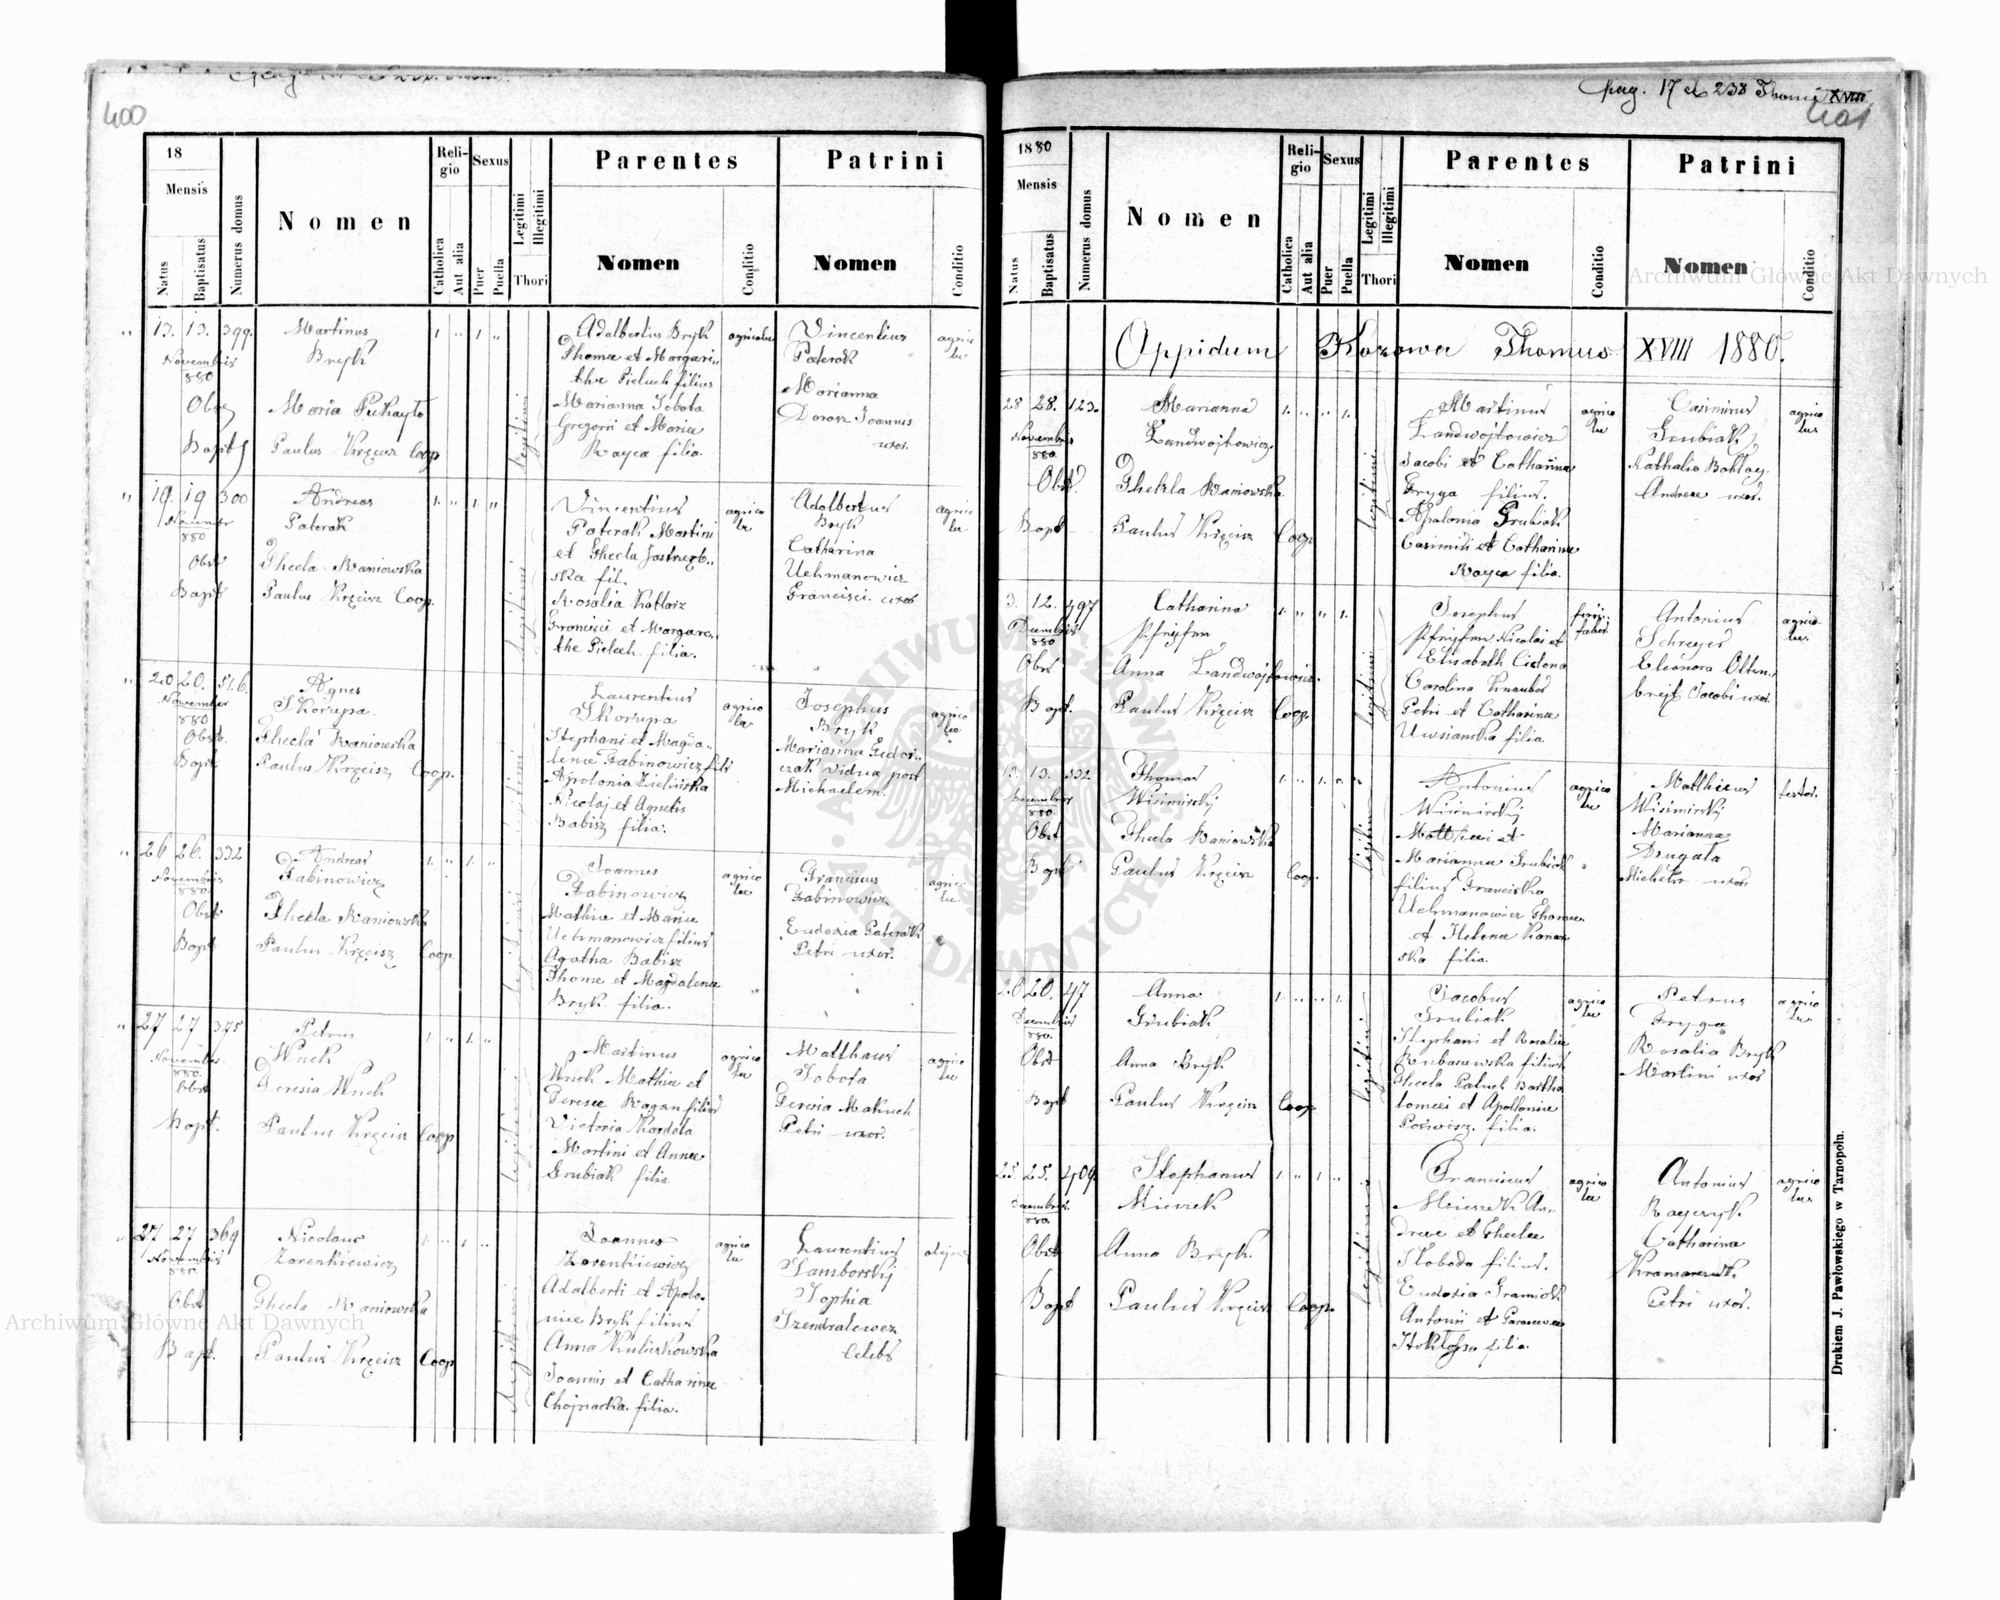 400
18
Mensis
Natus
Baptisatus
Numerus domus
Nomen
Religio
Catholica
Aut alia
Sexus
Puer
Puella
Legitimi
Illegitimi
Thori
Parentes
Nomen
Conditio
Patrini
Nomen
Conditio
13. 13. 399.
Novembris
880
Martinus
Bryk
Obst
Maria Puhayło
Bapt
Paulus Kręcisz Coop
legitimi
Adalbertus Bryk
Thomae et Margari-
thae Pieluch filius
Marianna Sobota
Gregorii et Mariae
Rayca filia.
agricola
Vincentius
Paterak
Marianna
Dorosz Joannis
uxor.
agrico
la
19. 19 300
880
Andreas
Paterak
Obst
Thecla Raniowska
Bapt
Paulus Kręcisz Coop.
legitimi
Vincentius
Paterak Martini
et Thecla Jastrzęb-
ska fil.
Rosalia Kotlarz
Francisci et Margare-
thae Pieluch filia.
agrico
la
Adalbertus
Bryk
Catharina
Uchmanowicz
Francisci uxor
agrico
la
20 20. 516.
November
880
Agnes
Skorupa.
Obst.
Thecla Raniowska
Bapt
Paulus Kręcisz Coop.
Laurentius
Skorupa
Stephani et Magda-
lenae Fabinowicz fili
Apolonia Zielińska
Nicolaj et Agnetis
Babisz filia.
agrico
la
Josephus
Bryk
Marianna Fedor-
czak vidua post
Michaelem.
agrico
la
26 26. 332
Novembris
880.
Andreas
Fabinowicz
Obst
Thecla Raniowska
Bapt
Paulus Kręcisz Coop.
Joannes
Fabinowicz
Mathiae et Mariae
Uchmanowicz filius
Agatha Babisz
Thomae et Magdalenae
Bryk filia.
agrico
la
Franciscus
Fabinowicz
Eudoxia Paterak
Petri uxor.
agrico
la
27 27 375
November
880.
Petrus
Wnek
Obst
Teresia Wnek
Bapt.
Paulus Kręcisz Coop
Martinus
Wnek Mathiae et
Teresae Kagan filius
Victoria Kardela
Martini et Annae
Grubiak filia
agrico
la
Matthaus
Sobota
Teresia Makuch
Petri uxor.
agrico
la
27 27 369
Novembris
880.
Nicolaus
Zarenkiewicz
Obst
Thecla Raniowska
Bapt.
Paulus Kręcisz Coop
Joannes
Zarenkiewicz
Adalberti et Apolo-
niae Bryk filius
Anna Kuliszkowska
Joannis et Catharinae
Chojnacka filia.
agrico
la
Laurentius
Samborskij
Sophia
Szendralewicz
Celebs
pag. 17 et 238 Thomus XVIII
401
1880
Mensis
Natus
Baptisatus
Numerus domus
Nomen
Religio
Catholica
Aut alia
Sexus
Puer
Puella
Legitimi
Illegitimi
Thori
Parentes
Nomen
Conditio
Patrini
Nomen
Conditio
Oppidum Kozowa Thomus XVIII 1880.
28 28. 123.
Novembris
880.
Marianna
Landwojtowicz
Obst.
Thekla Raniowska
Bapt
Paulus Kręcisz Coop
legitimi
Martinus
Landwojtowicz
Jacobi et Catharina
Gryga filius.
Apalonia Grubiak
Casimiri et Catharinae
Rayca filia.
agrico
la
Casimirus
Grubiak
Nathalia Bobłay
Andreae uxor.
agrico
la
3. 12. 497
Decembris
880
Catharina
Obst
Anna Landwojtowicz.
Bapt.
Paulus Kręcisz Coop.
legitimi
Josephus
Nicolai et
Elisabeth
Carolina Knauber
Petri et Catharinae
Uwsianska filia.
ferri-
faber
Antonius
Schreyer
Eleonora Otten-
breit Jacobi uxor.
agrico
la.
13. 13. 332
Decembris
880.
Thomas
Wisimirskij
Obst
Thecla Raniowska
Bapt
Paulus Kręcisz Coop.
Antonius
Wisimirskij
Matthiei et
Marianna Grubiak
filius Franciska
Uchmanowicz Thomae
et Helenae Kanar-
ska filia.
agrico
la
Matthius
Wisimirskij
Marianna
Drugała
uxor
textor.
20 20. 47
Decembris
880.
Anna
Grubiak
Obst
Anna Bryk
Bapt
Paulus Kręcisz Coop
legitimi
Jacobus
Grubiak
Stephani et Rosaliae
filius
Thecla Paluch Bartho
lomei et Apolloniae
filia.
agrico
la
Petrus
Fryga
Rosalia Bryk
Martini uxor
agrico
la
25. 25. 409.
Decembris
880.
Stephanus
Mierzek
Obst
Anna Bryk.
Bapt
Paulus Kręcisz Coop.
legitimi
Franciscus
An-
dreae et Theclae
Słoboda filius.
Eudoxia Gramiak
Antonii et Parascevae
filia.
agrico
la
Antonius
Rayczyk
Catharina
Petri uxor.
agrico
la.
Drukiem J. Pawłowskiego w Tarnopolu.
Archiwum Główne Akt Dawnych
Archiwum Główne Akt Dawnych
ARCHIWUM GŁÓWNE AKT DAWNYCH